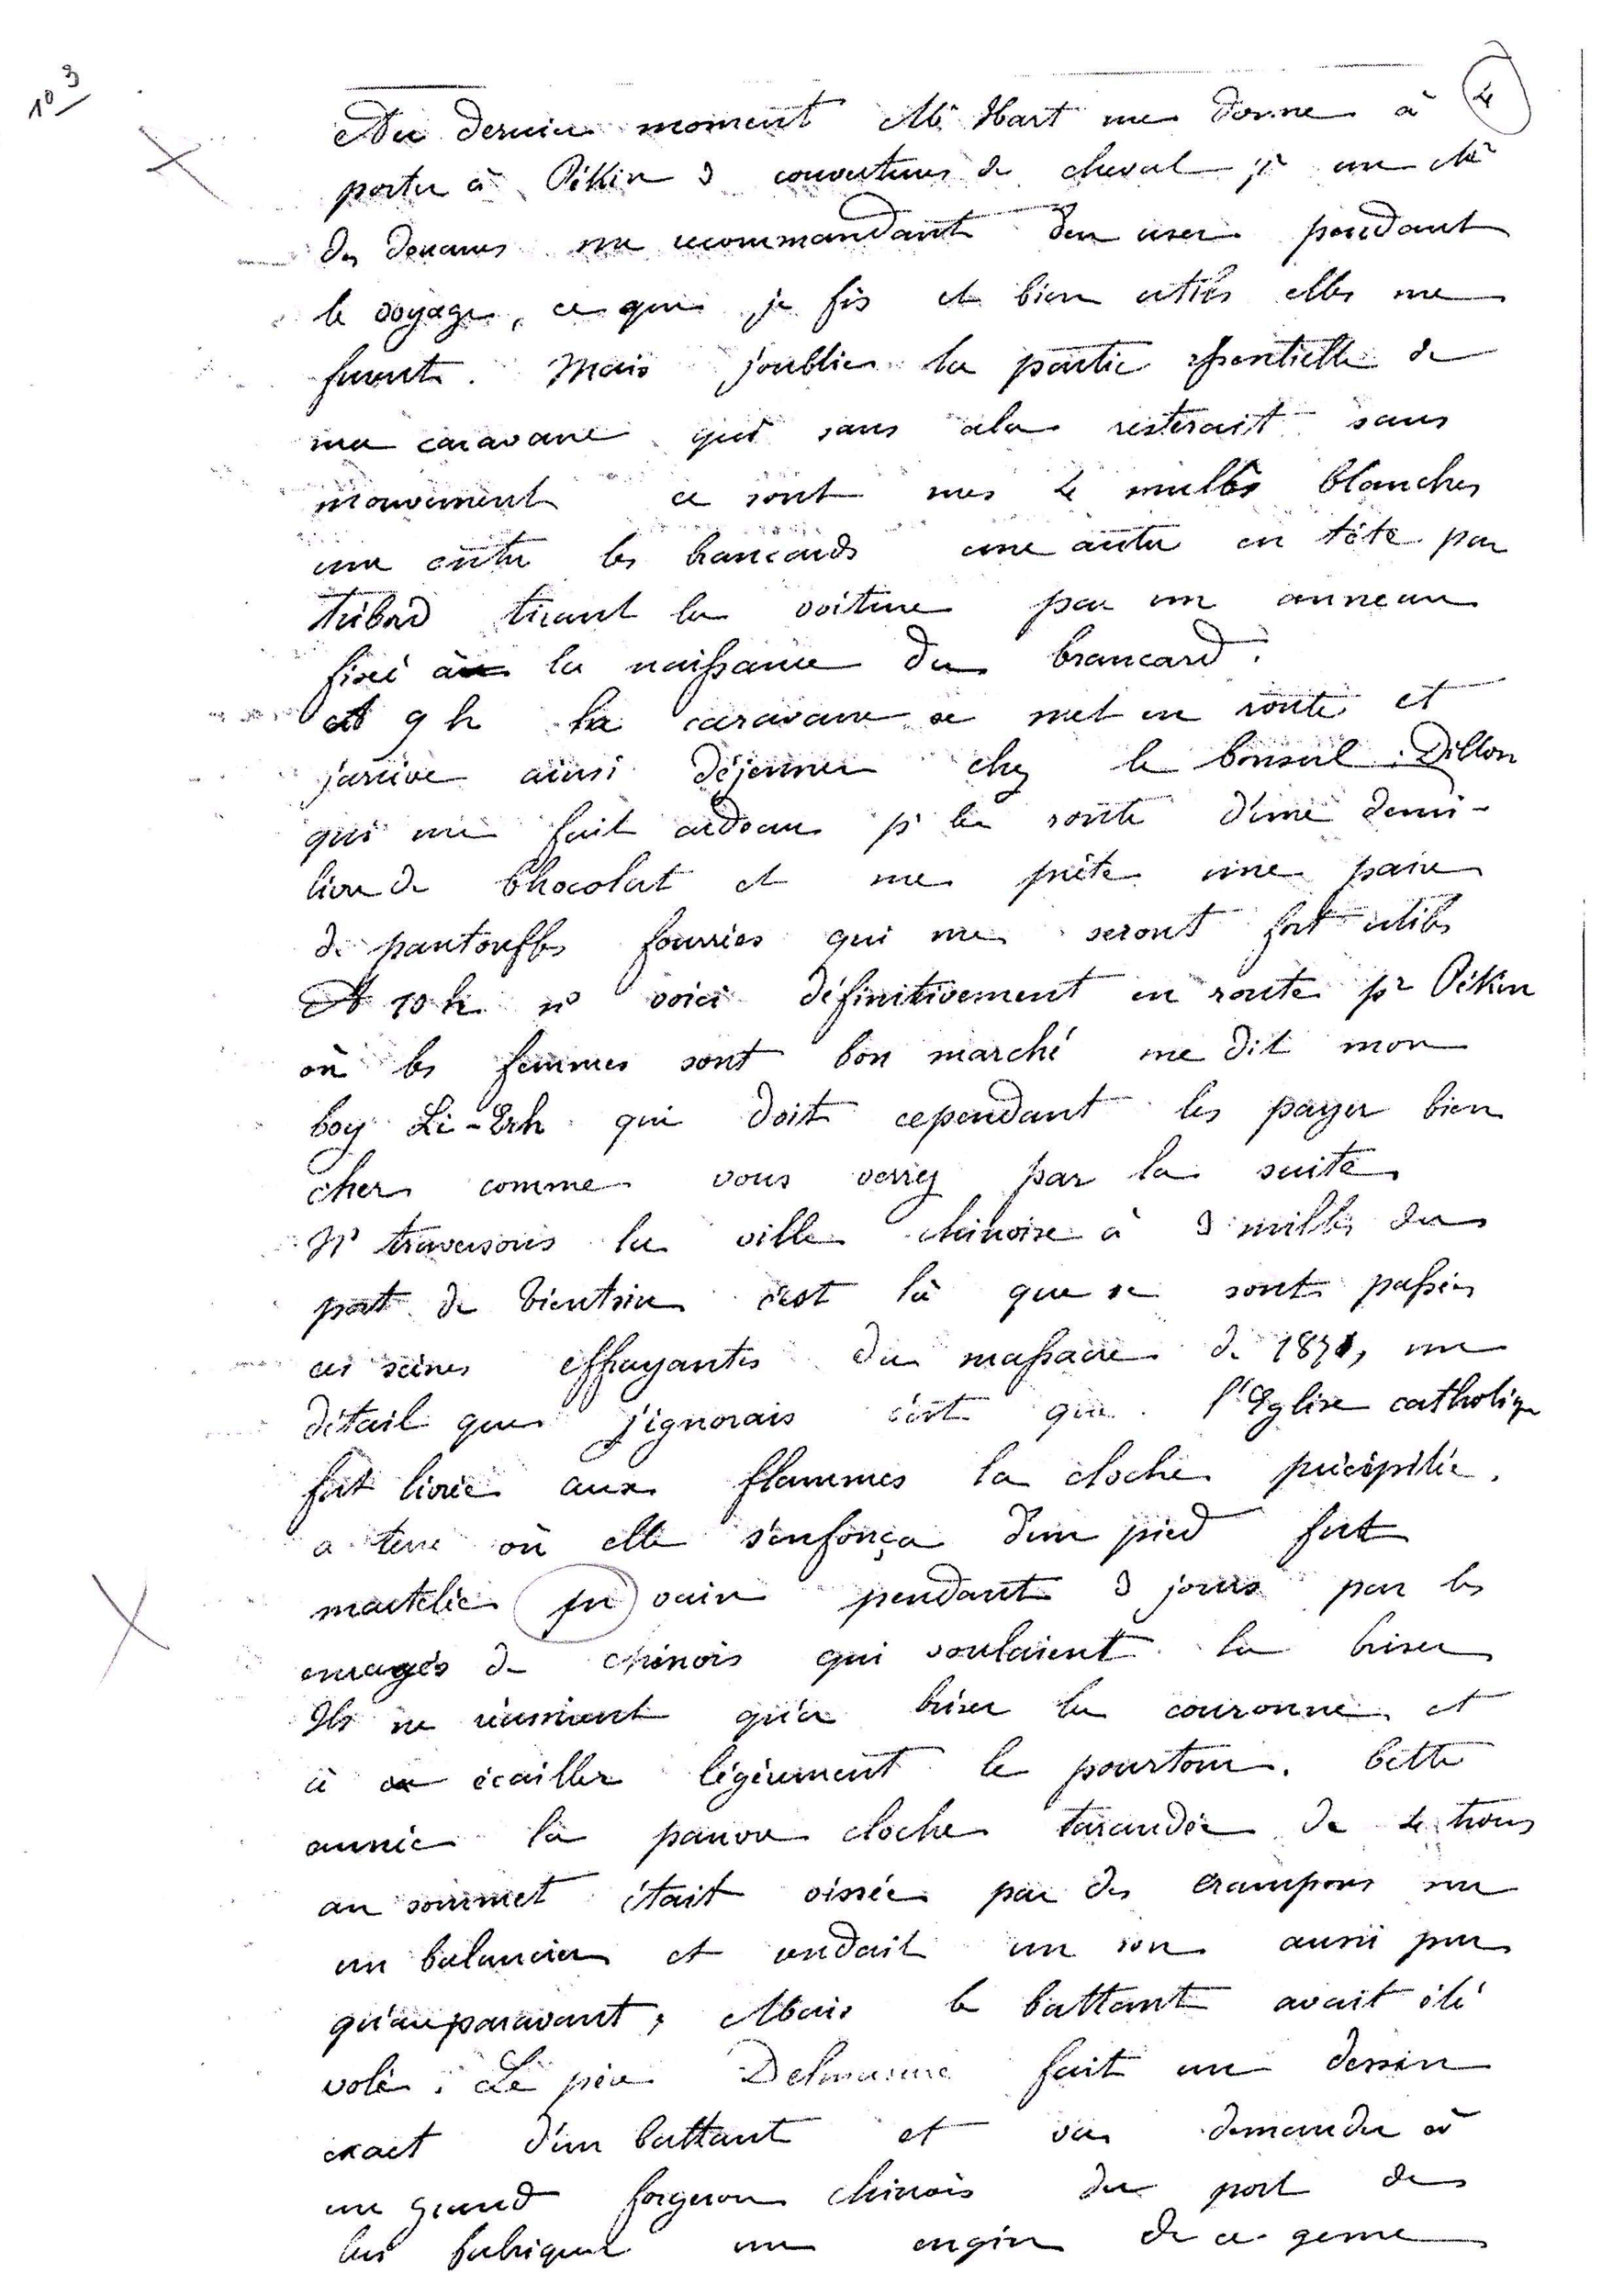 103
4
Au dernier moment Mr Hart me donne à
porter à Pékin 3 couvertures de cheval pr un Mr
des douanes me recommandant d'en user pendant
le voyage, ce que je fis et bien utiles elles me
furent. Mais j'oublie la partie essentielle de
ma caravane qui sans cela resterait sans
mouvement ce sont mes 4 mulles blanches
une entre les brancards une autre en tête par
tribord tirant la voiture par un anneau
fixé à la naissance du brancard.
A 9 h la caravane se met en route et
j'arrive ainsi déjeuner chez le Consul Dillon
qui me fait cadeau pr la route d'une demi-
livre de Chocolat et me prête une paire
de pantouffles fourrées qui me seront fort utiles
A 10 h ns voici définitivement en route pr Pékin
où les femmes sont bon marché me dit mon
boy Li-Erh qui doit cependant les payer bien
cher comme vous verrez par la suite
Ns traversons la ville chinoise à 3 milles du
port de Tientsin c'est là que se sont passées
ces scènes effrayantes du massacre de 1871, un
détail que j'ignorais c'est que l'Eglise catholique
fut livrée aux flammes la cloche précipitée
a terre où elle s'enfonça d'un pied fut
martelée en vain pendant 3 jours par les
enragés de chinois qui voulaient la briser
Ils ne réussirent qu'a briser la couronne et
à écailler légèrement le pourtour. Cette
année la pauvre cloche taraudée de 4 trous
au sommet était vissée par des crampons sur
un balancier et rendait un son aussi pur
qu'auparavant, Mais le battant avait été
volé. Le père fait un dessin
exact d'un battant et va demander à
un grand forgeron chinois du port de
lui fabriquer un engin de ce genre